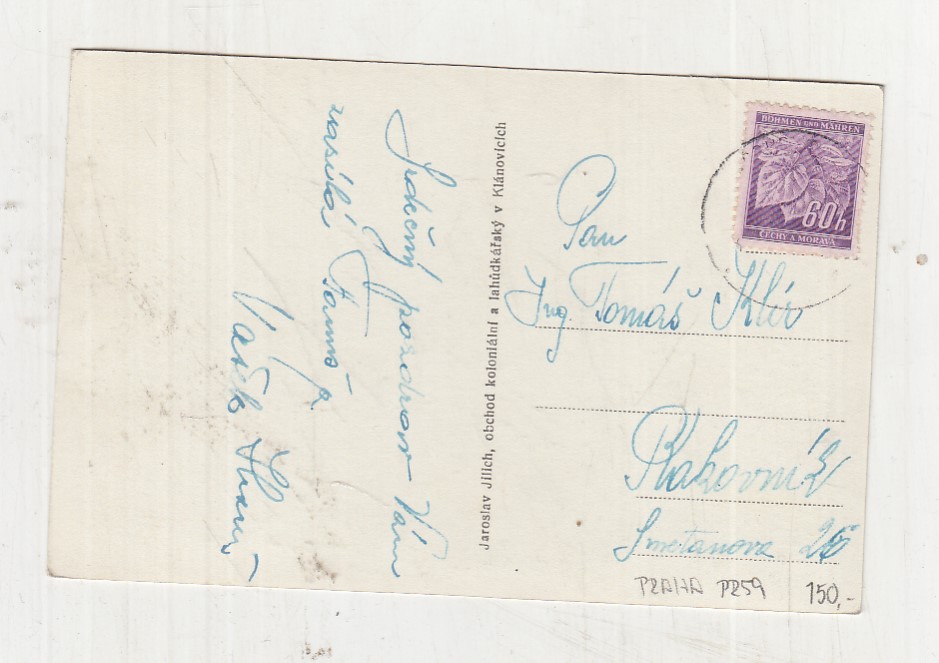 Srdečný pozdrav Vám
zasílá
Vašek
Jaroslav Jílich, obchod koloniální a lahůdkářský v Klánovicích
BÖHMEN UND MÄHREN
60h
ČECHY A MORAVA
Pan
Ing. Tomáš Klír
Rakovník
Smetanova
PRAHA PZ59
150,-